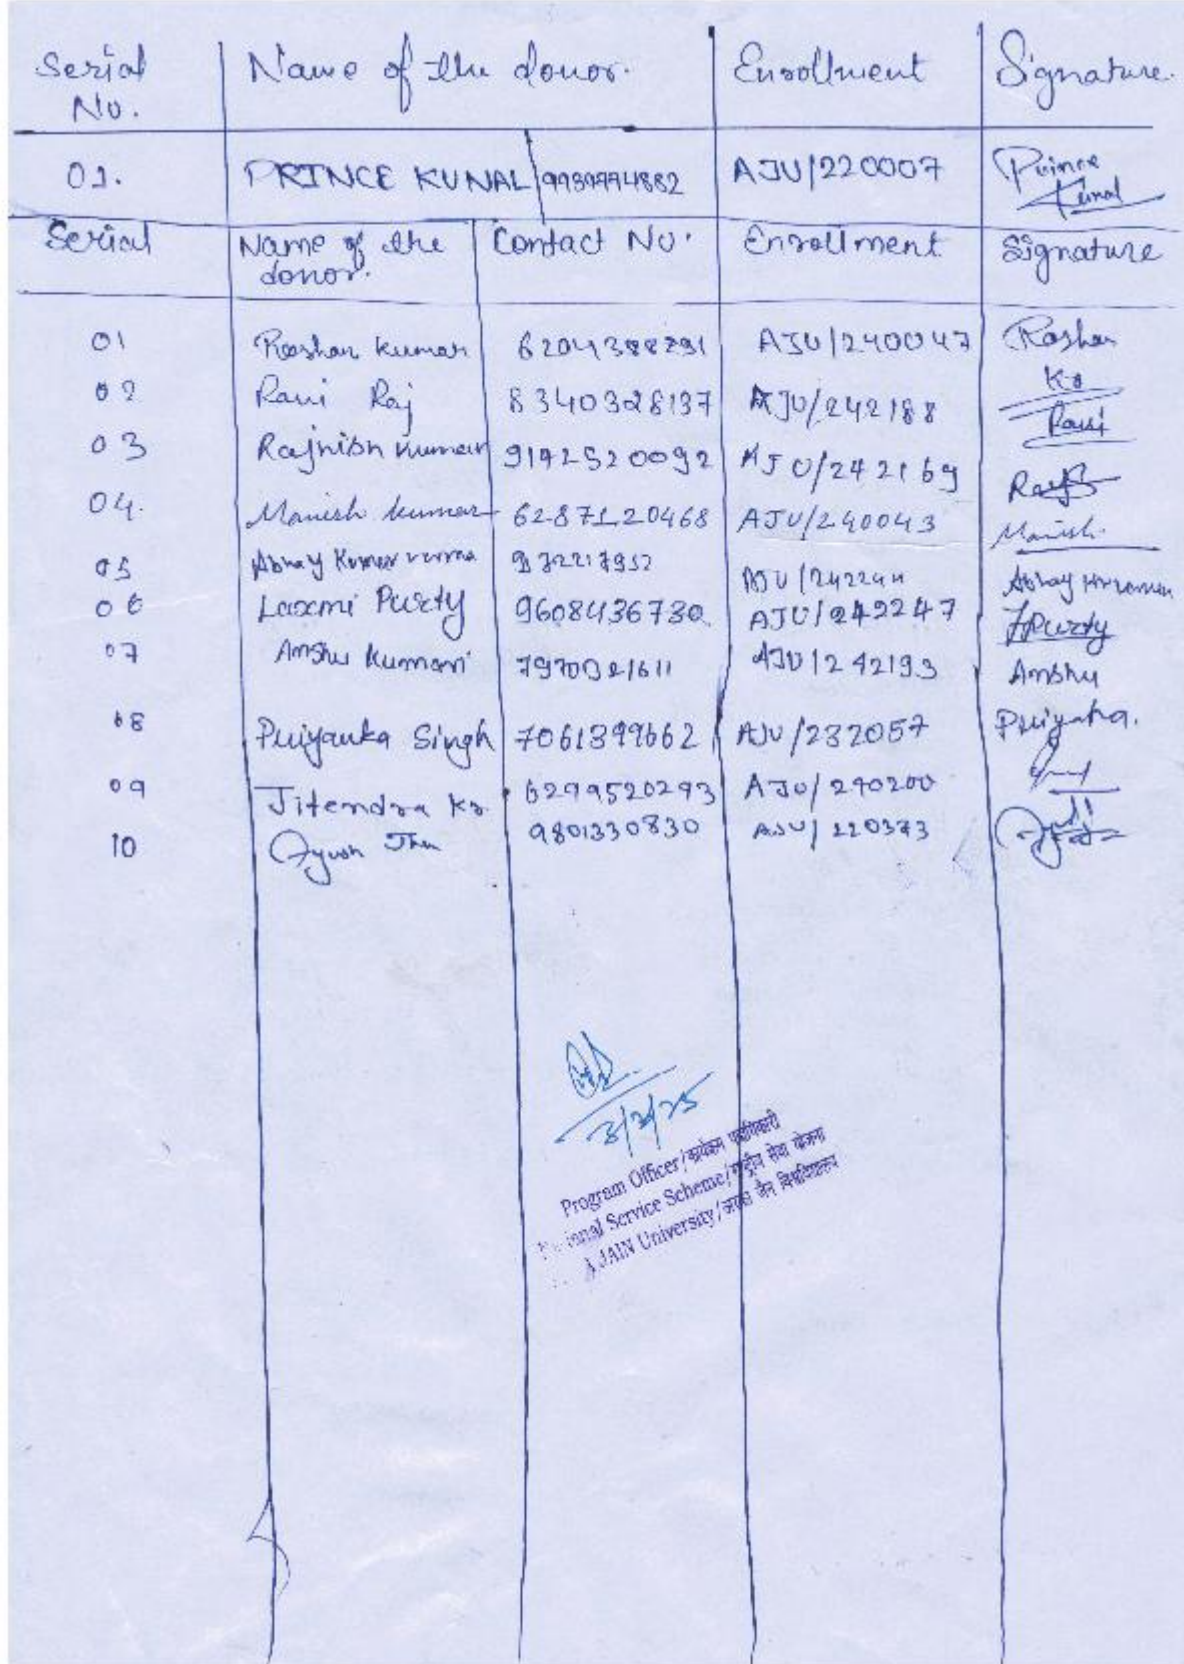 Serial No. Name of the donor. Enrollment Signature.
01. PRINCE KUNAL AJU/220007 Prince Kunal
Serial Name of the donor. Contact No. Enrollment Signature
01 Roshan Kumar AJU/240047 Roshan Kr
02 Ravi Raj 8340328137 AJU/242188 Ravi
03 Rajnish Kumar 9142520092 AJU/242169
04. Manish kumar 6287120468 AJU/240043 Manish.
05 Abhay Kumar verma Abhay
06 Laxmi Purty 9608436730 AJU/242247 LPurty
07 Anshu Kumari AJU/242193 Anshu
08 Priyanka Singh 7061399662 AJU/232057 Priyanka.
09 Jitendra Kr. 6299520293
10 Ayush Jha 9801330830 AJU/220373
Program Officer/कार्यक्रम पदाधिकारी
National Service Scheme/राष्ट्रीय सेवा योजना
JAIN University/अरका जैन विश्वविद्यालय